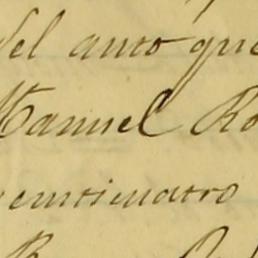 del auto que
Manuel Ro
veinticuatro